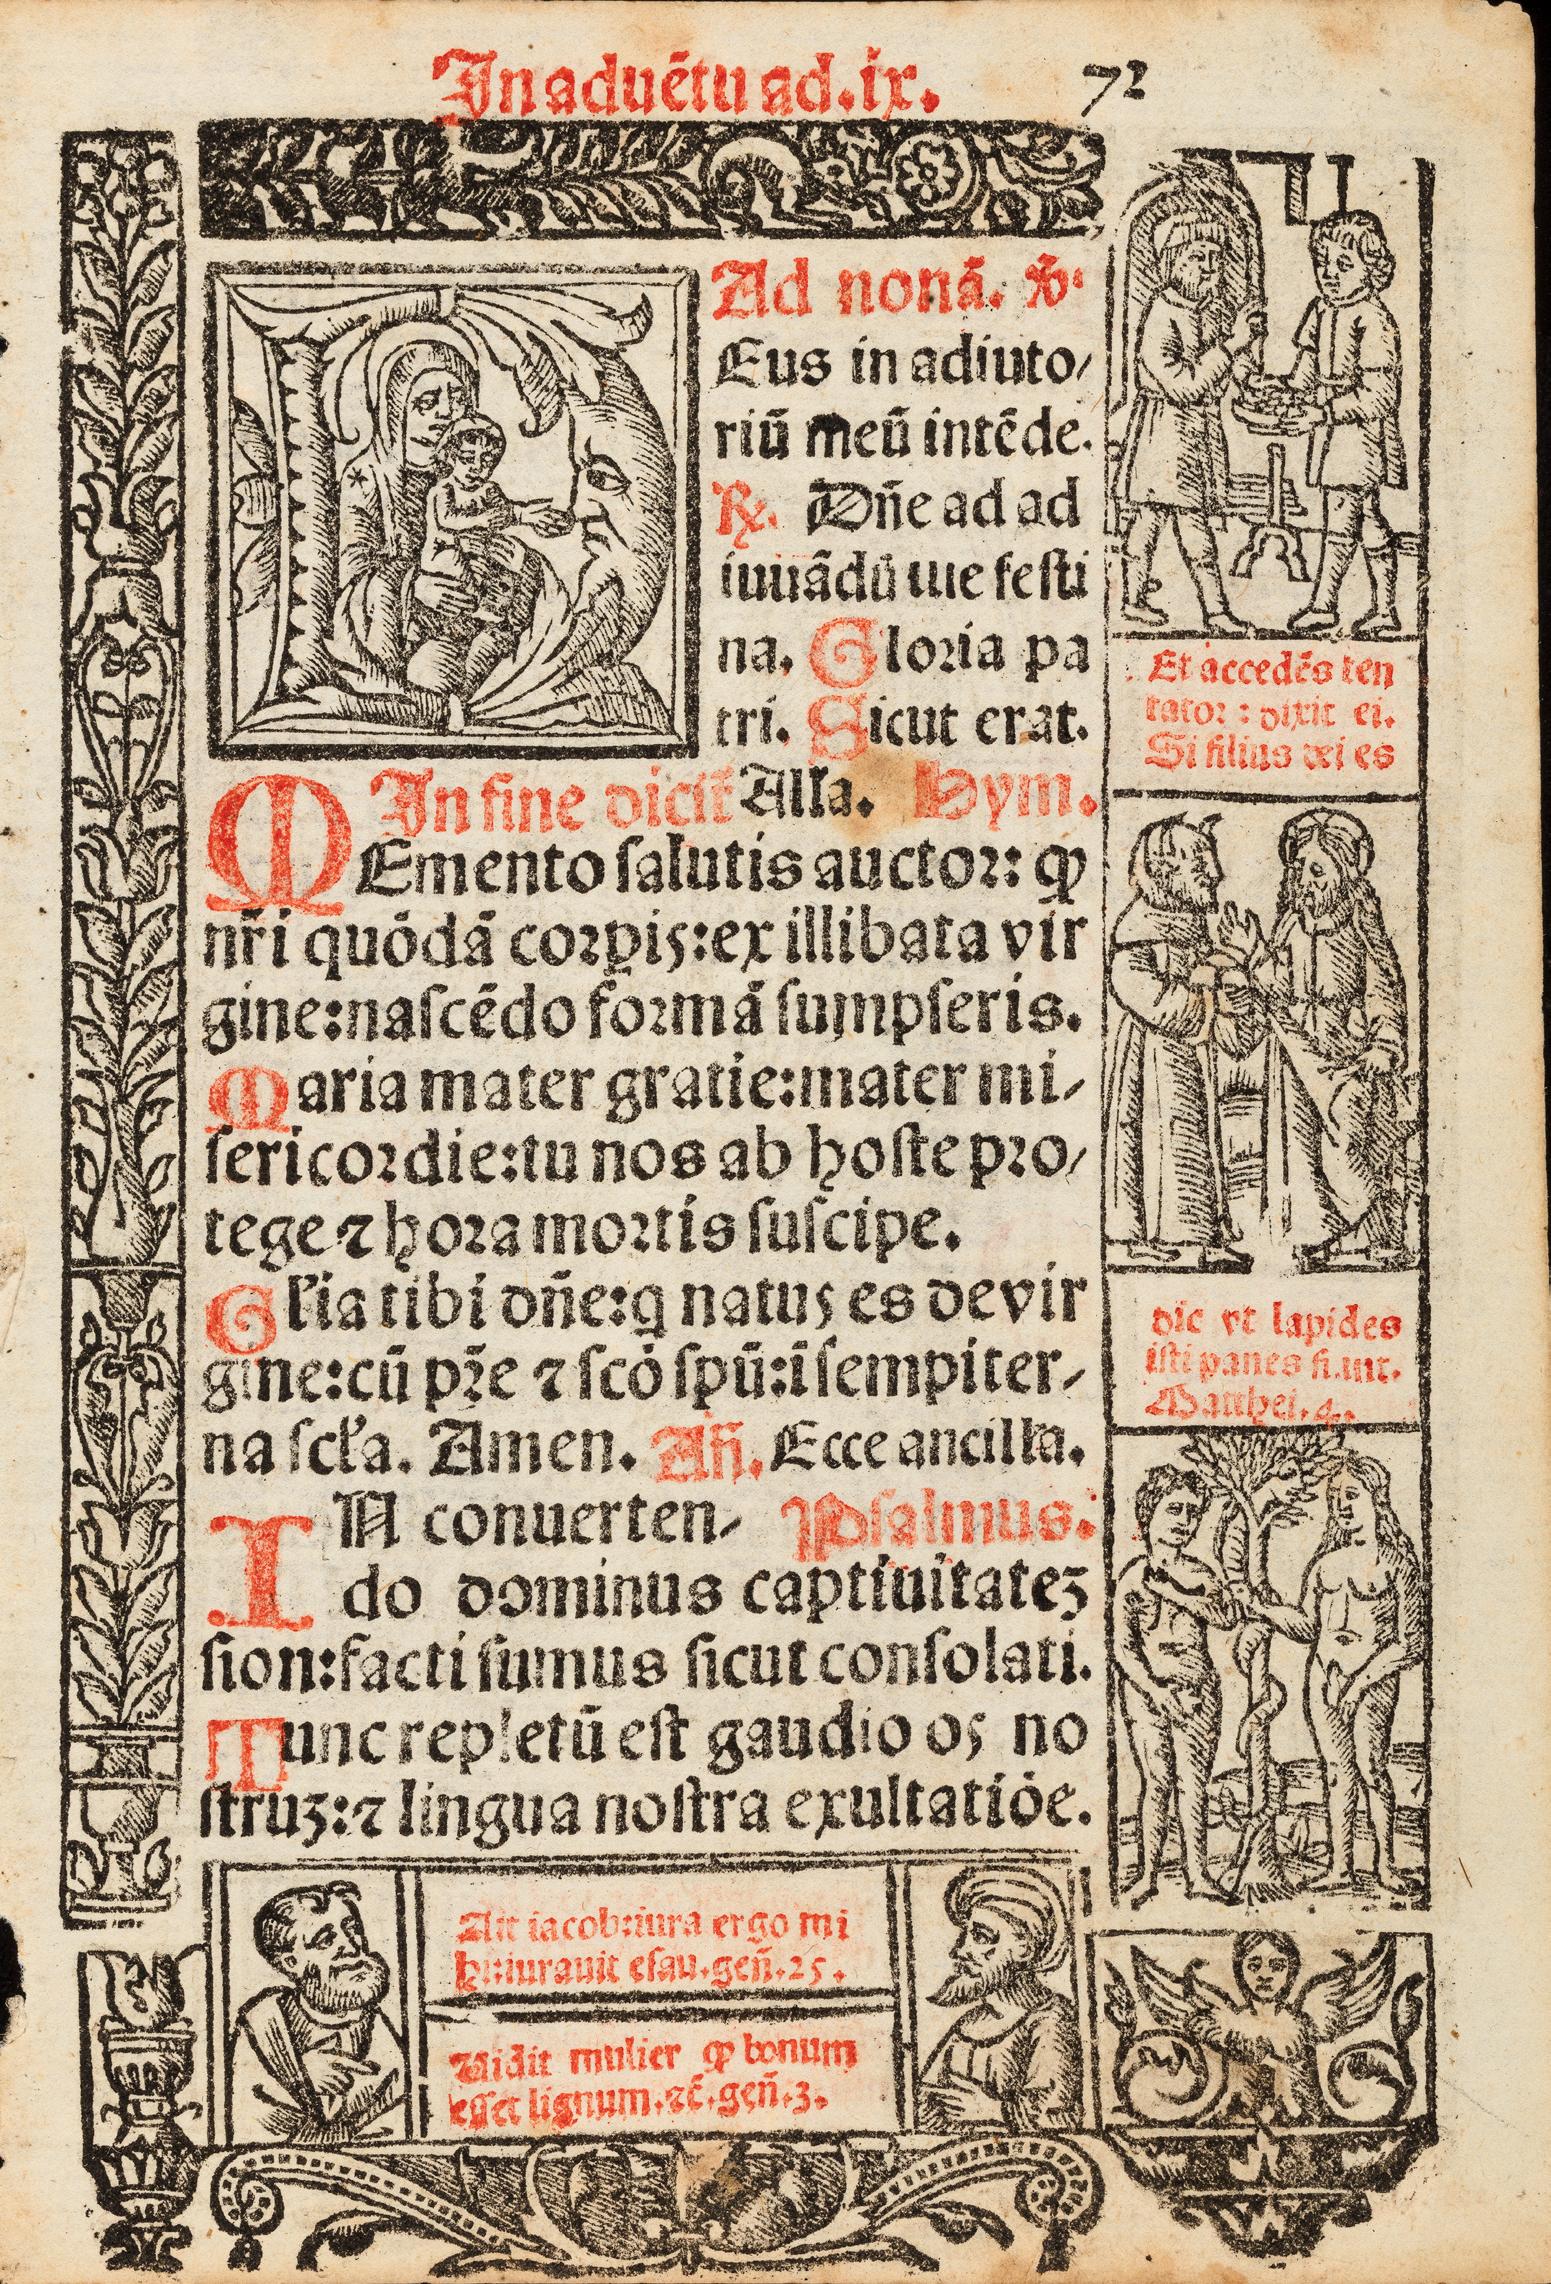 In aduētu ad.ix. 72
Ad nonā. ℣.
Eus in adiuto/
riū meū intēde.
℞. Dn̄e ad ad
iuuādū me festi
na. Gloria pa
tri. Sicut erat.
In fine dicit̄ Alľa. Hym.
MEmento salutis auctor: ꝙ
nr̄i quōdā corꝑis:ex illibata vir
gine:nascēdo formā sumpseris.
Maria mater gratie:mater mi/
sericordie:tu nos ab hoste pro/
tege ⁊ hora mortis suscipe.
Gľia tibi dn̄e:q natus es de vir
gine:cū pr̄e ⁊ scō spū:ī sempiter/
na scľa. Amen. An̄. Ecce ancilla.
IN conuerten/ Psalmus.
do dominus captiuitatez
sion:facti sumus sicut consolati.
Tunc repletū est gaudio os no
struz:⁊ lingua nostra exultatiōe.
Et accedēs ten
tator: dixit ei.
Si filius dei es
dic vt lapides
isti panes fi.unt.
Matthei.4.
Ait iacob:iura ergo mi
hi:iurauit esau.gen̄.25.
Uidit mulier ꝙ bonum
esset lignum.⁊c̄.gen̄.3.